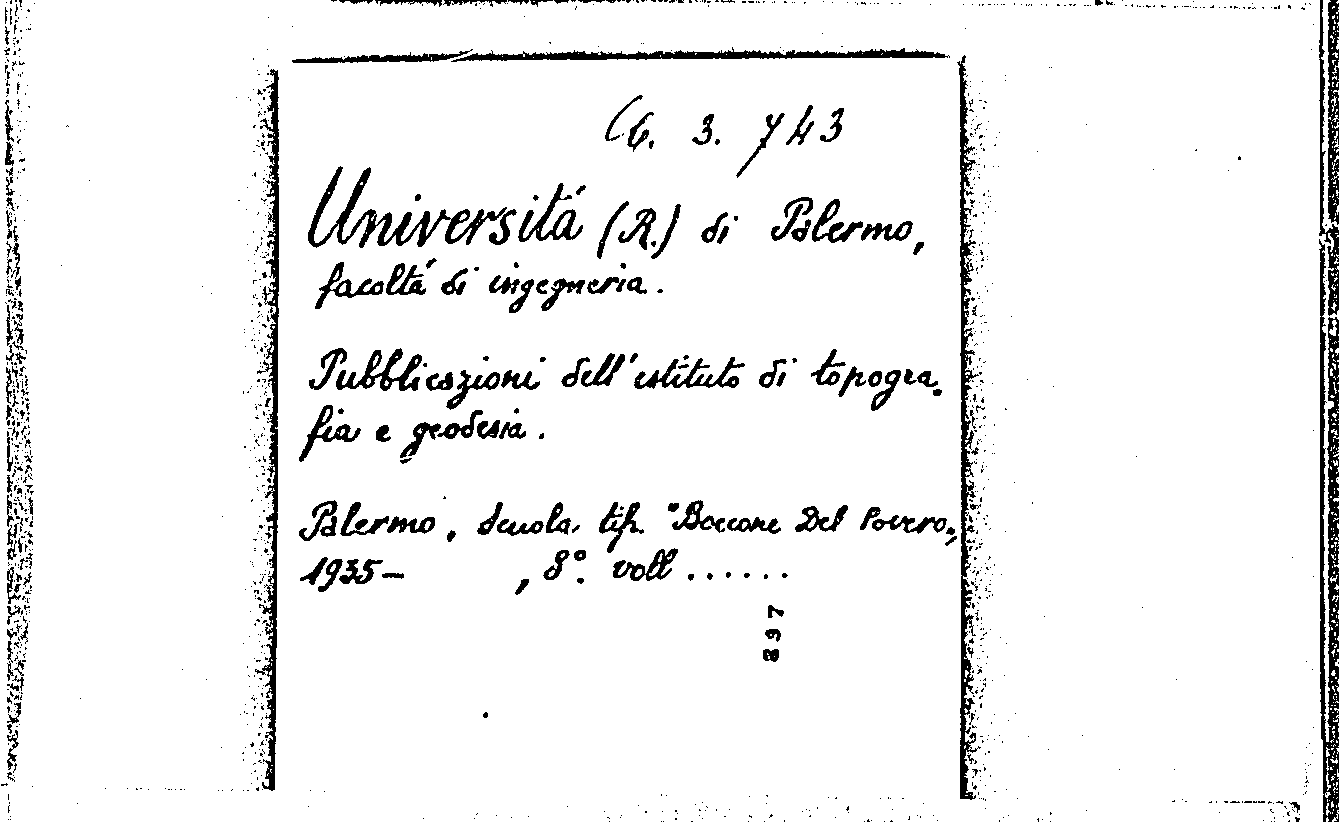 C6. 3. 743
Universitá (R.) di Palermo,
facoltá di ingegneria.
Pubblicazioni dell'istituto di topogra-
fia e geodesia.
Palermo, Scuola tip. "Boccone Del Povero,,
1935— , 8°. voll ......
897